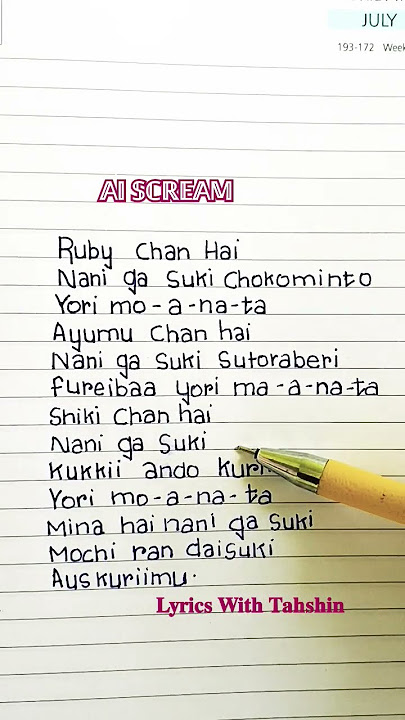 JULY
193-172 Week
AI SCREAM
Ruby Chan Hai
Nani ga Suki Chokominto
Yori mo-a-na-ta
Ayumu Chan hai
Nani ga Suki Sutoraberi
fureibaa yori ma-a-na-ta
Shiki Chan hai
Nani ga Suki
Kukkii ando
Yori mo-a-na-ta
Mina hai nani ga Suki
Mochi ran daisuki
Aus kuriimu.
Lyrics With Tahshin